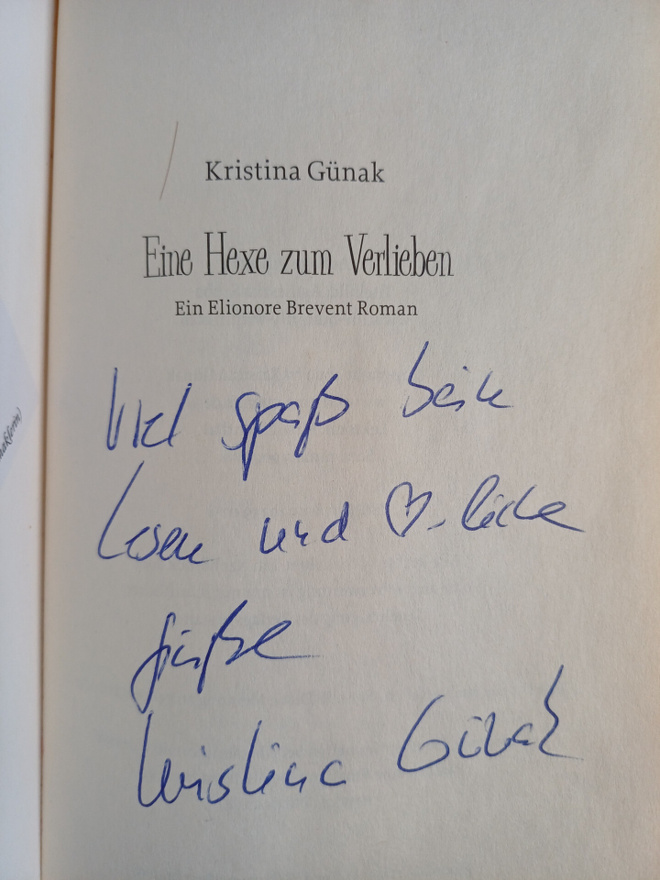 Kristina Günak
Eine Hexe zum Verlieben
Ein Elionore Brevent Roman
Viel Spaß beim
Lesen und ♡-liche
Grüße
Kristina Günak